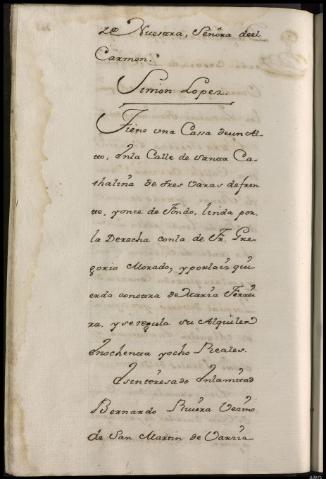 de Nuestra, Señora deel
Carmen.
Simon Lopez.
Tiene una Cassa deun Al-
to, Enla Calle de santa Ca-
thalina de tres varas defren-
te, yonce de fondo, linda por,
la Derecha conla de Fr. Gre-
gorio Morado, y porlaiz qui-
erda conotra de Maria Ferrei-
ra, y se regula su Alquiler
Enochenta yocho Reales.
Esinteresado Enlamitad
Bernardo Rivera Vecino
de San Martin de